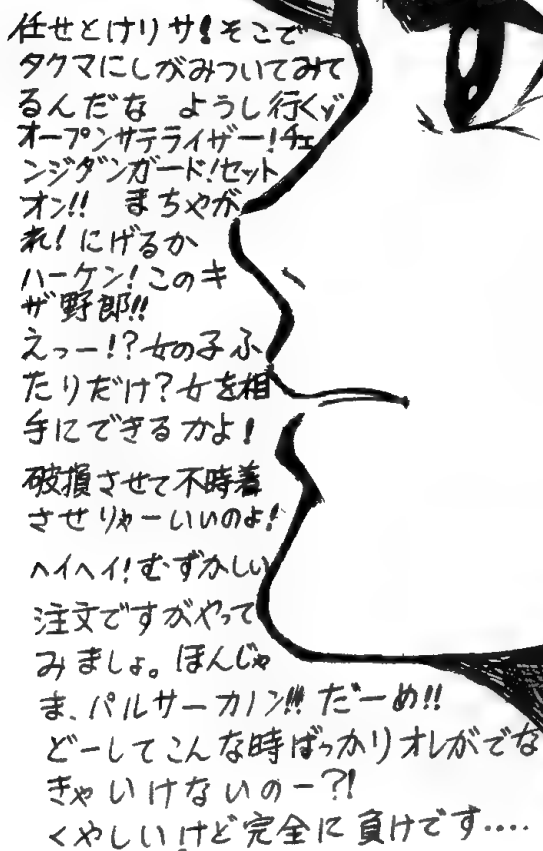 任せとけリサ!そこで
タクマにしがみついてみて
るんだな ようし行くゾ
オープンサテライザー!チェ
ンジダンガード!セット
オン!! まちやが
れ!にげるか
ハーケン!このキ
ザ野郎!!
えっー!?女の子ふ
たりだけ?女を相
手にできるかよ!
破損させて不時着
させりゃーいいのよ!
ヘイヘイ!むずかしい
注文ですがやって
みましょ。ほんじゃ
ま、パルサーカノン!!! だーめ!!
どーしてこんな時ばっかりオレがでな
きゃいけないのー?!
くやしいけど完全に負けです‥‥